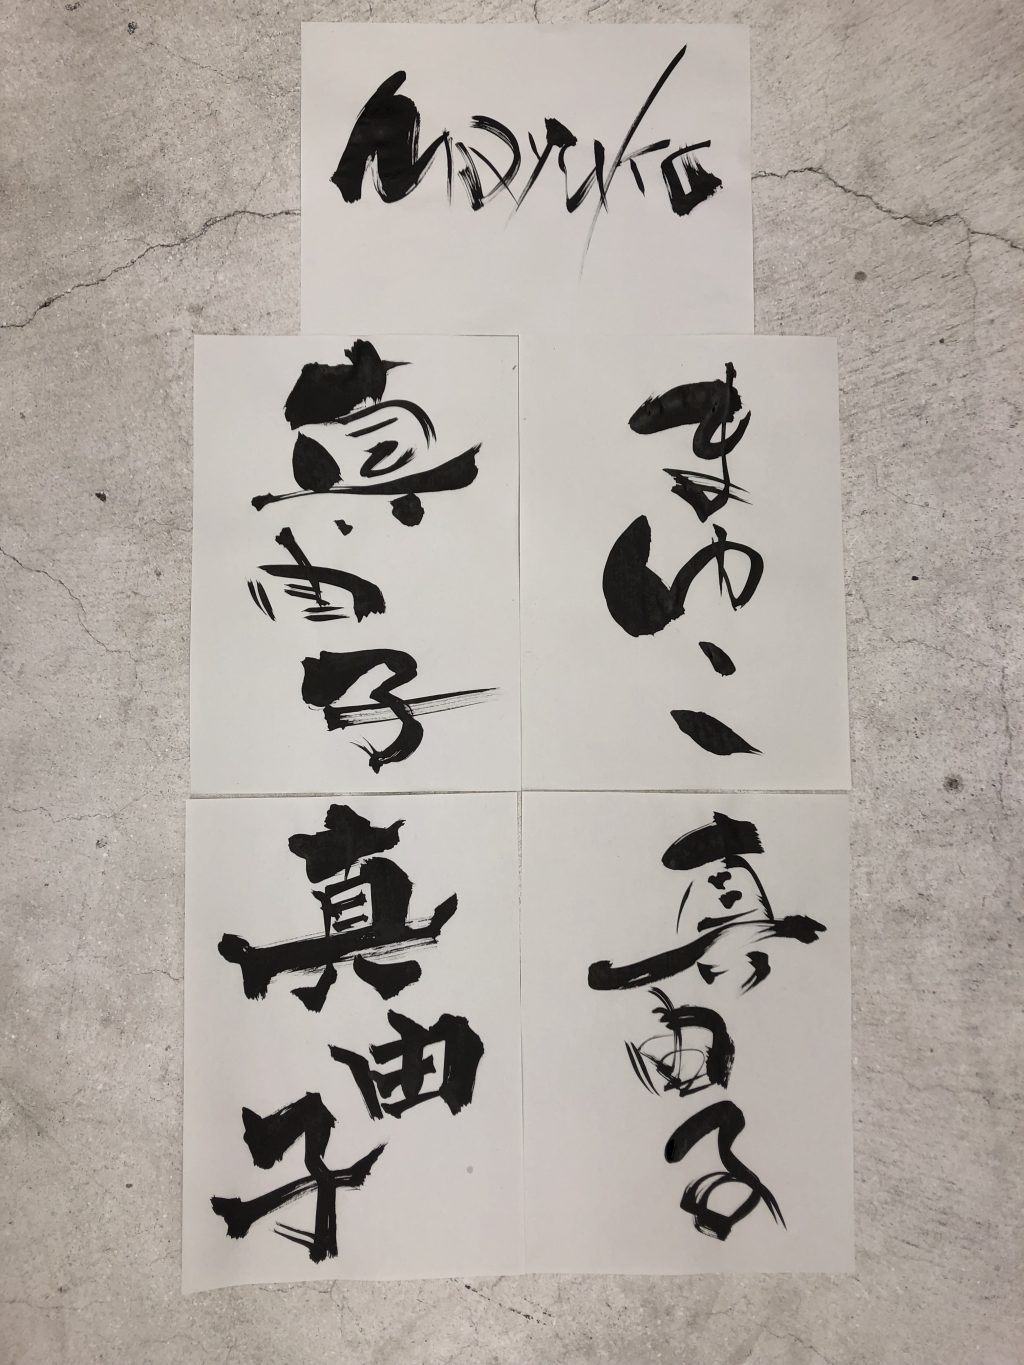 Mayuko
まゆこ
真由子
真由子
真由子